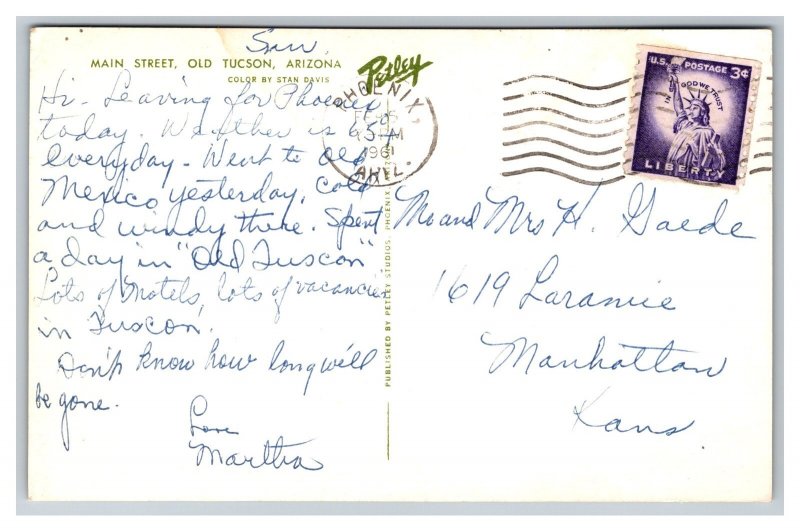 Sun.
MAIN STREET, OLD TUCSON, ARIZONA
COLOR BY STAN DAVIS
Petley
Hi- Leaving for Phoenix
today. Weather is 65°
everyday. Went to Old
Mexico yesterday, cold
and windy there. Spent
a day in "Old Tuscon"
Lots of motels, lots of vacancies
in Tuscon.
Don't know how long we'll
be gone.
Love
Martha
PHOENIX,
FEB
PM
1961
ARIZ.
U.S. POSTAGE 3¢
IN GOD WE TRUST
LIBERTY
Mr and Mrs H. Gaede
1619 Laramie
Manhattan
Kans.
PUBLISHED BY PETLEY STUDIOS, PHOENIX